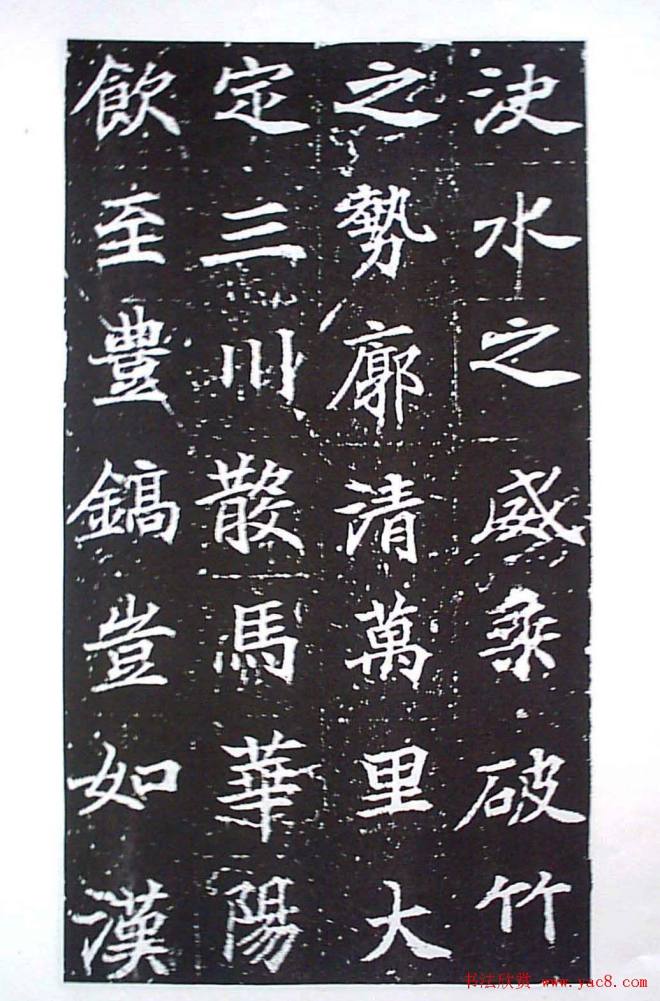 決水之威乘破竹
之勢廓清萬里大
定三川散馬華陽
飲至豊鎬豈如漢
书法欣赏 www.yac8.com